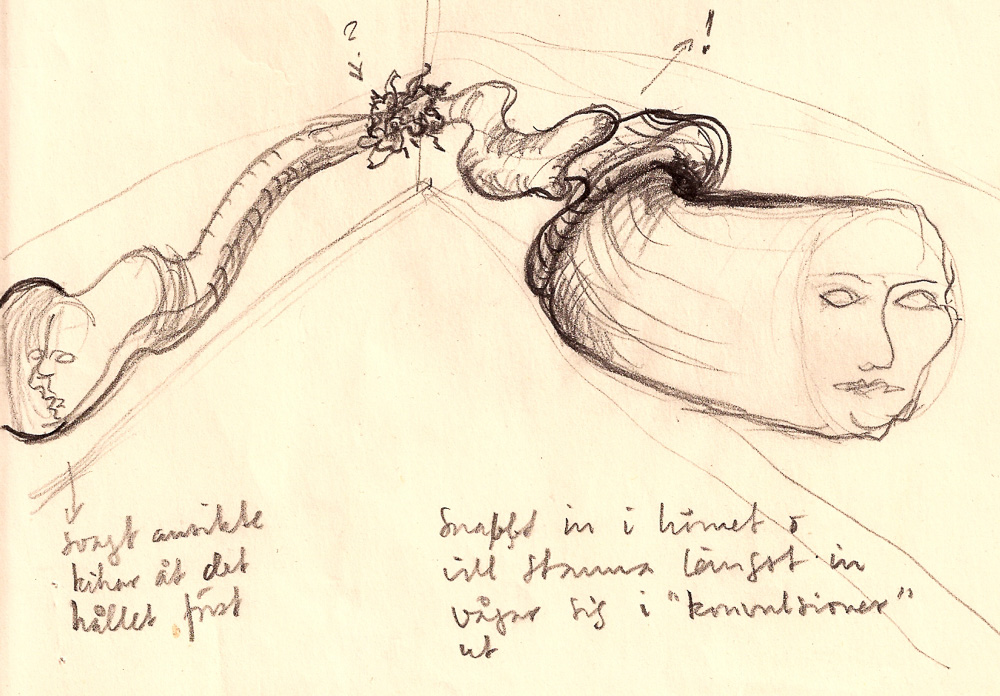 !
svagt ansikte
åt det
hållet först
Snabbt in i hörnet o
vill stanna längst in
vågar sig i "konvulsioner"
ut